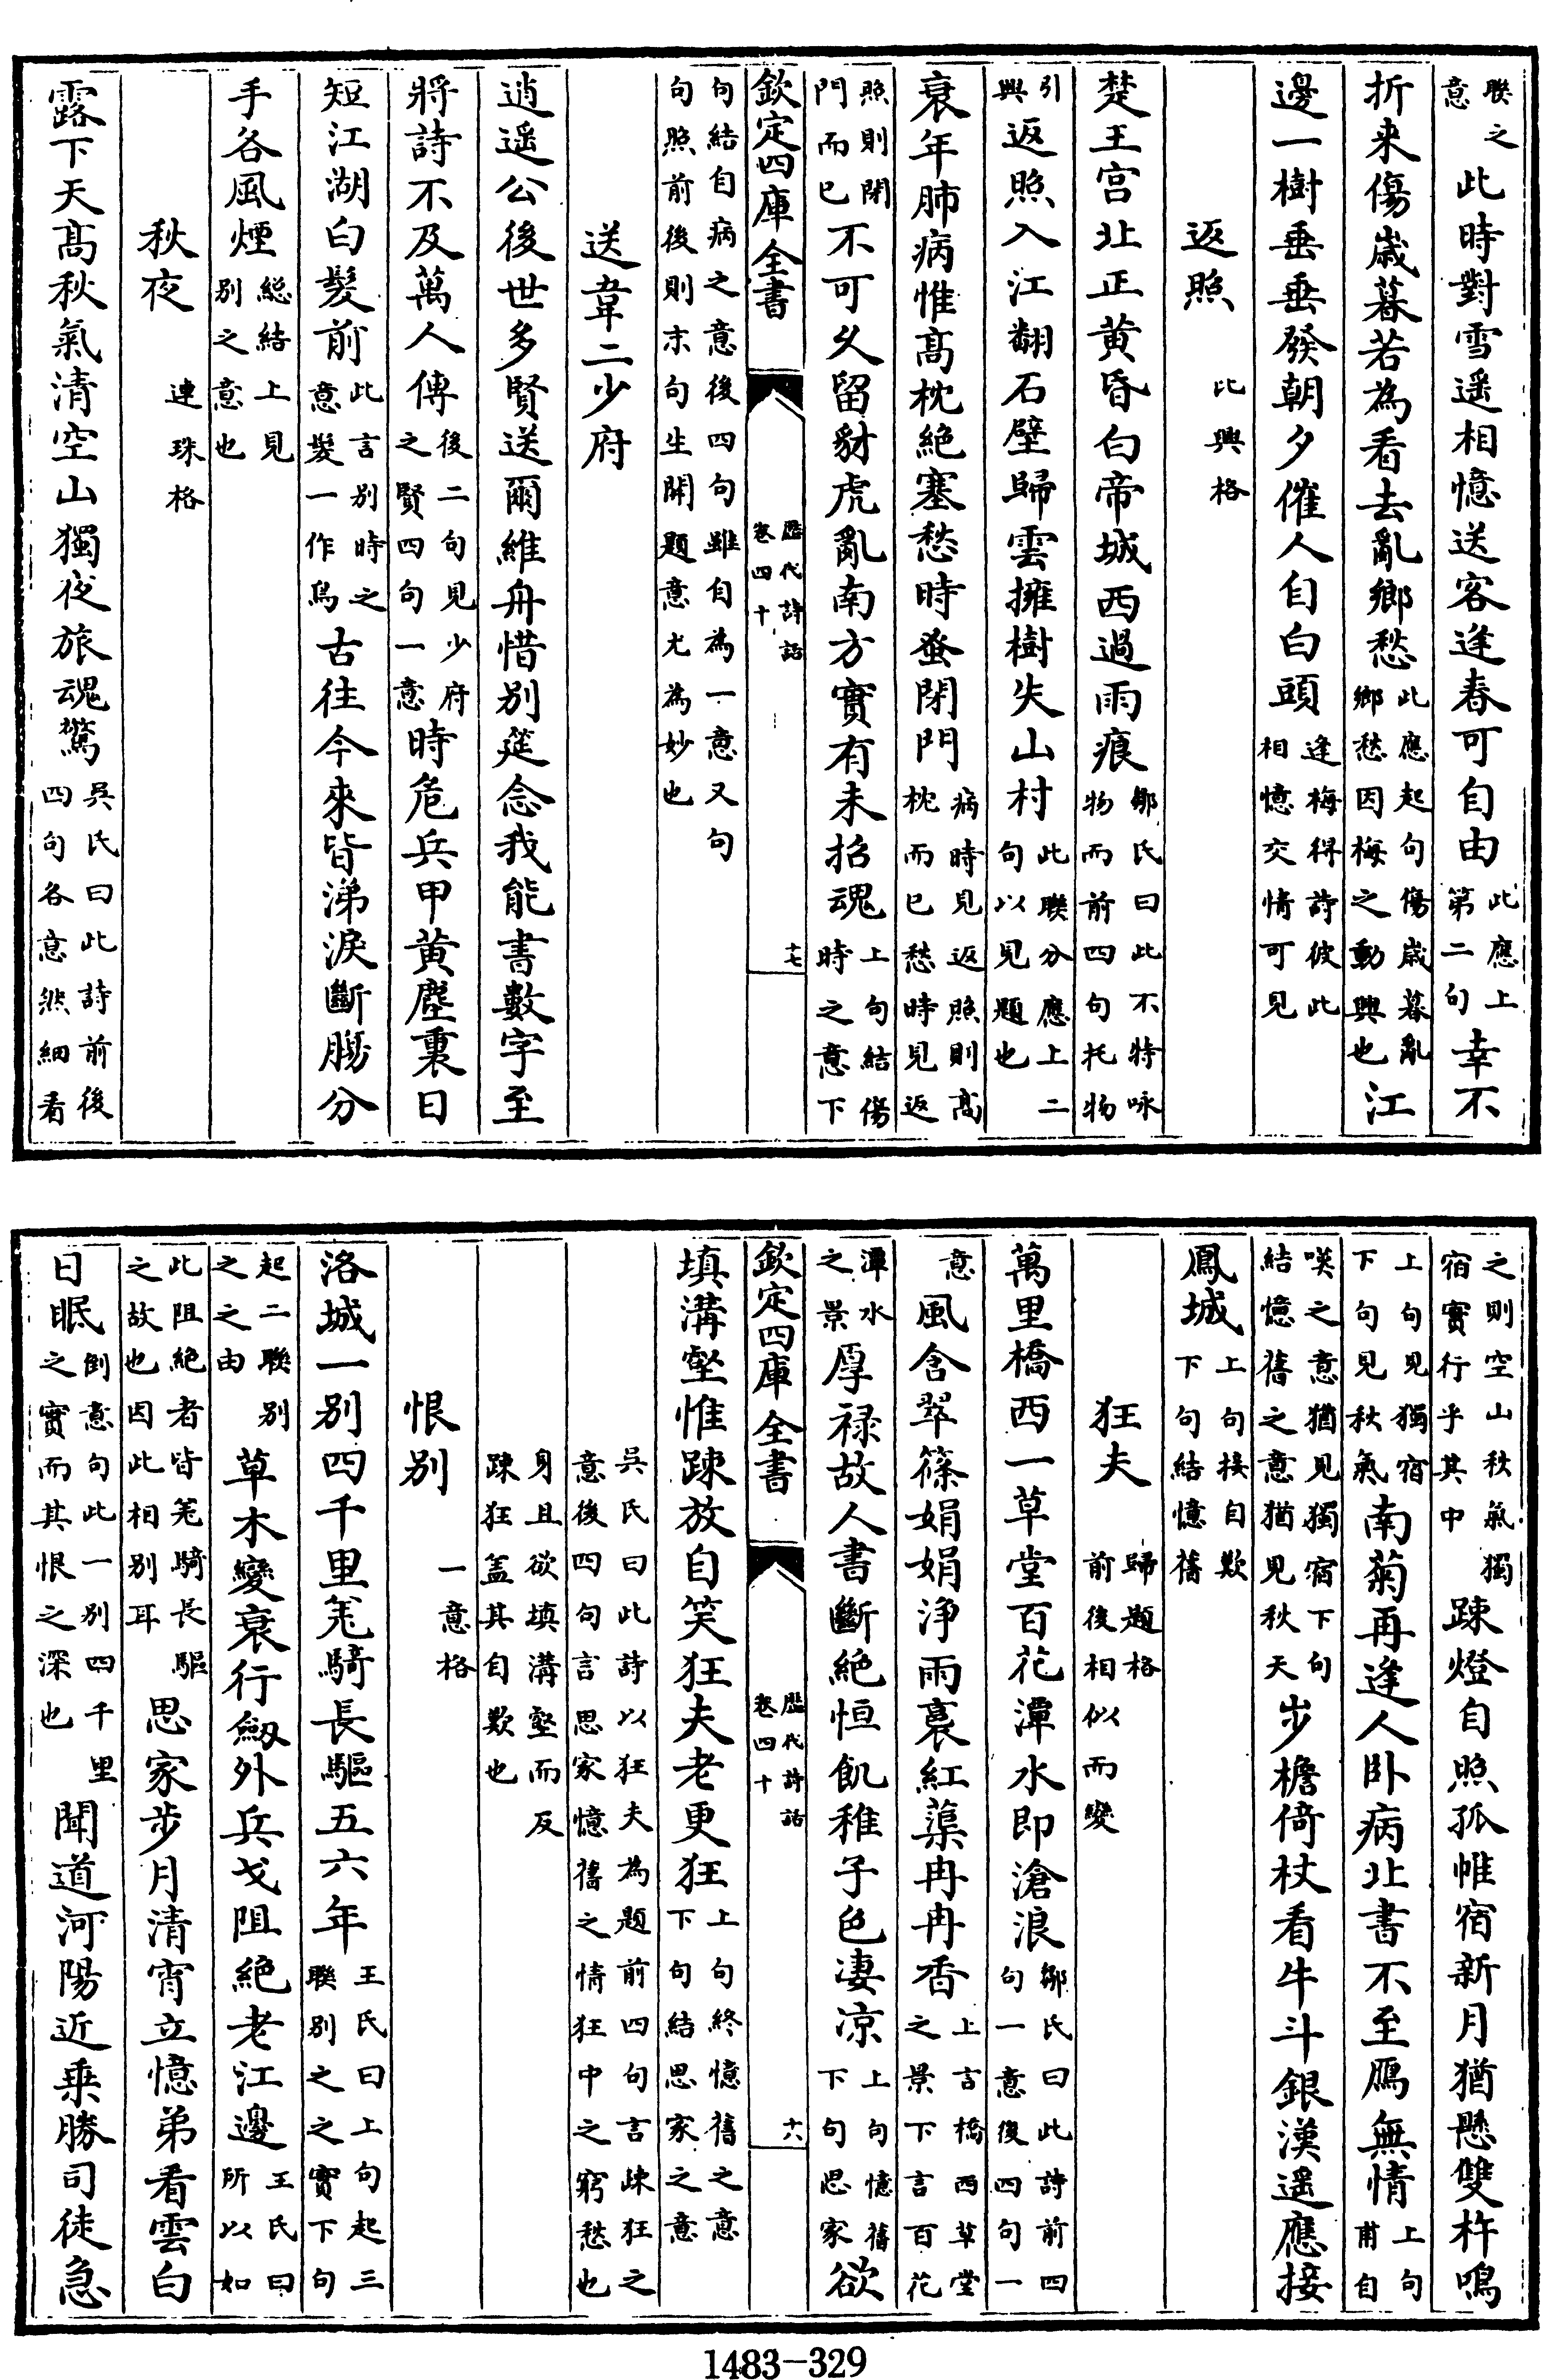 聨之意此時對雪遥相憶送客逢春可自由此應上第二句幸不
折来傷嵗暮若為看去亂鄉愁此應起句傷嵗暮亂鄉愁因梅之動興也江
邊一樹垂垂發朝夕催人自白頭逢梅得詩彼此相憶交情可見
返照比興格
楚王宫北正黄昏白帝城西過雨痕鄒氏曰此不特咏物而前四句托物
引興返照入江翻石壁歸雲擁樹失山村此聨分應上二句以見題也
衰年肺病惟髙枕絶塞愁時蚤閉門病時見返照則髙枕而已愁時見返
照則閉門而已不可久留豺虎亂南方實有未招魂上句結傷時之意下
欽定四庫全書
歴代詩話
卷四十
十七
句結自病之意後四句雖自為一意又句句照前後則末句生開題意尤為妙也
送韋二少府
逍遥公後世多賢送爾維舟惜别筵念我能書數字至
將詩不及萬人傳後二句見少府之賢四句一意時危兵甲黄塵裏日
短江湖白髮前此言别時之意髮一作鳥古往今來皆涕淚斷腸分
手各風煙總結上見别之意也
秋夜連珠格
露下天髙秋氣清空山獨夜旅魂驚吳氏曰此詩前後四句各意然細看
之則空山秋氣獨宿實行乎其中踈燈自照孤帷宿新月猶懸雙杵鳴
上句見獨宿下句見秋氣南菊再逢人卧病北書不至鴈無情上句甫自
嘆之意猶見獨宿下句結憶舊之意猶見秋天步檐倚杖看牛斗銀漢遥應接
鳳城上句接自歎下句結憶舊
狂夫歸題格前後相似而變
萬里橋西一草堂百花潭水即滄浪鄒氏曰此詩前四句一意後四句一
意風含翠篠娟娟浄雨裛紅蕖冉冉香上言橋西草堂之景下言百花
潭水之景厚禄故人書斷絶恒飢稚子色凄凉上句憶舊下句思家欲
欽定四庫全書
歴代詩話
卷四十
十八
填溝壑惟踈放自笑狂夫老更狂上句終憶舊之意下句結思家之意
吳氏曰此詩以狂夫為題前四句言踈狂之意後四句言思家憶舊之情狂中之窮愁也
身且欲填溝壑而反踈狂盖其自歎也
恨别一意格
洛城一别四千里羌騎長驅五六年王氏曰上句起三聨别之之實下句
起二聨别之之由草木變衰行劒外兵戈阻絶老江邊王氏曰所以如
此阻絶者皆羌騎長驅之故也因此相别耳思家步月清宵立憶弟看雲白
日眠倒意句此一别四千里之實而其恨之深也聞道河陽近乗勝司徒急
1483-329